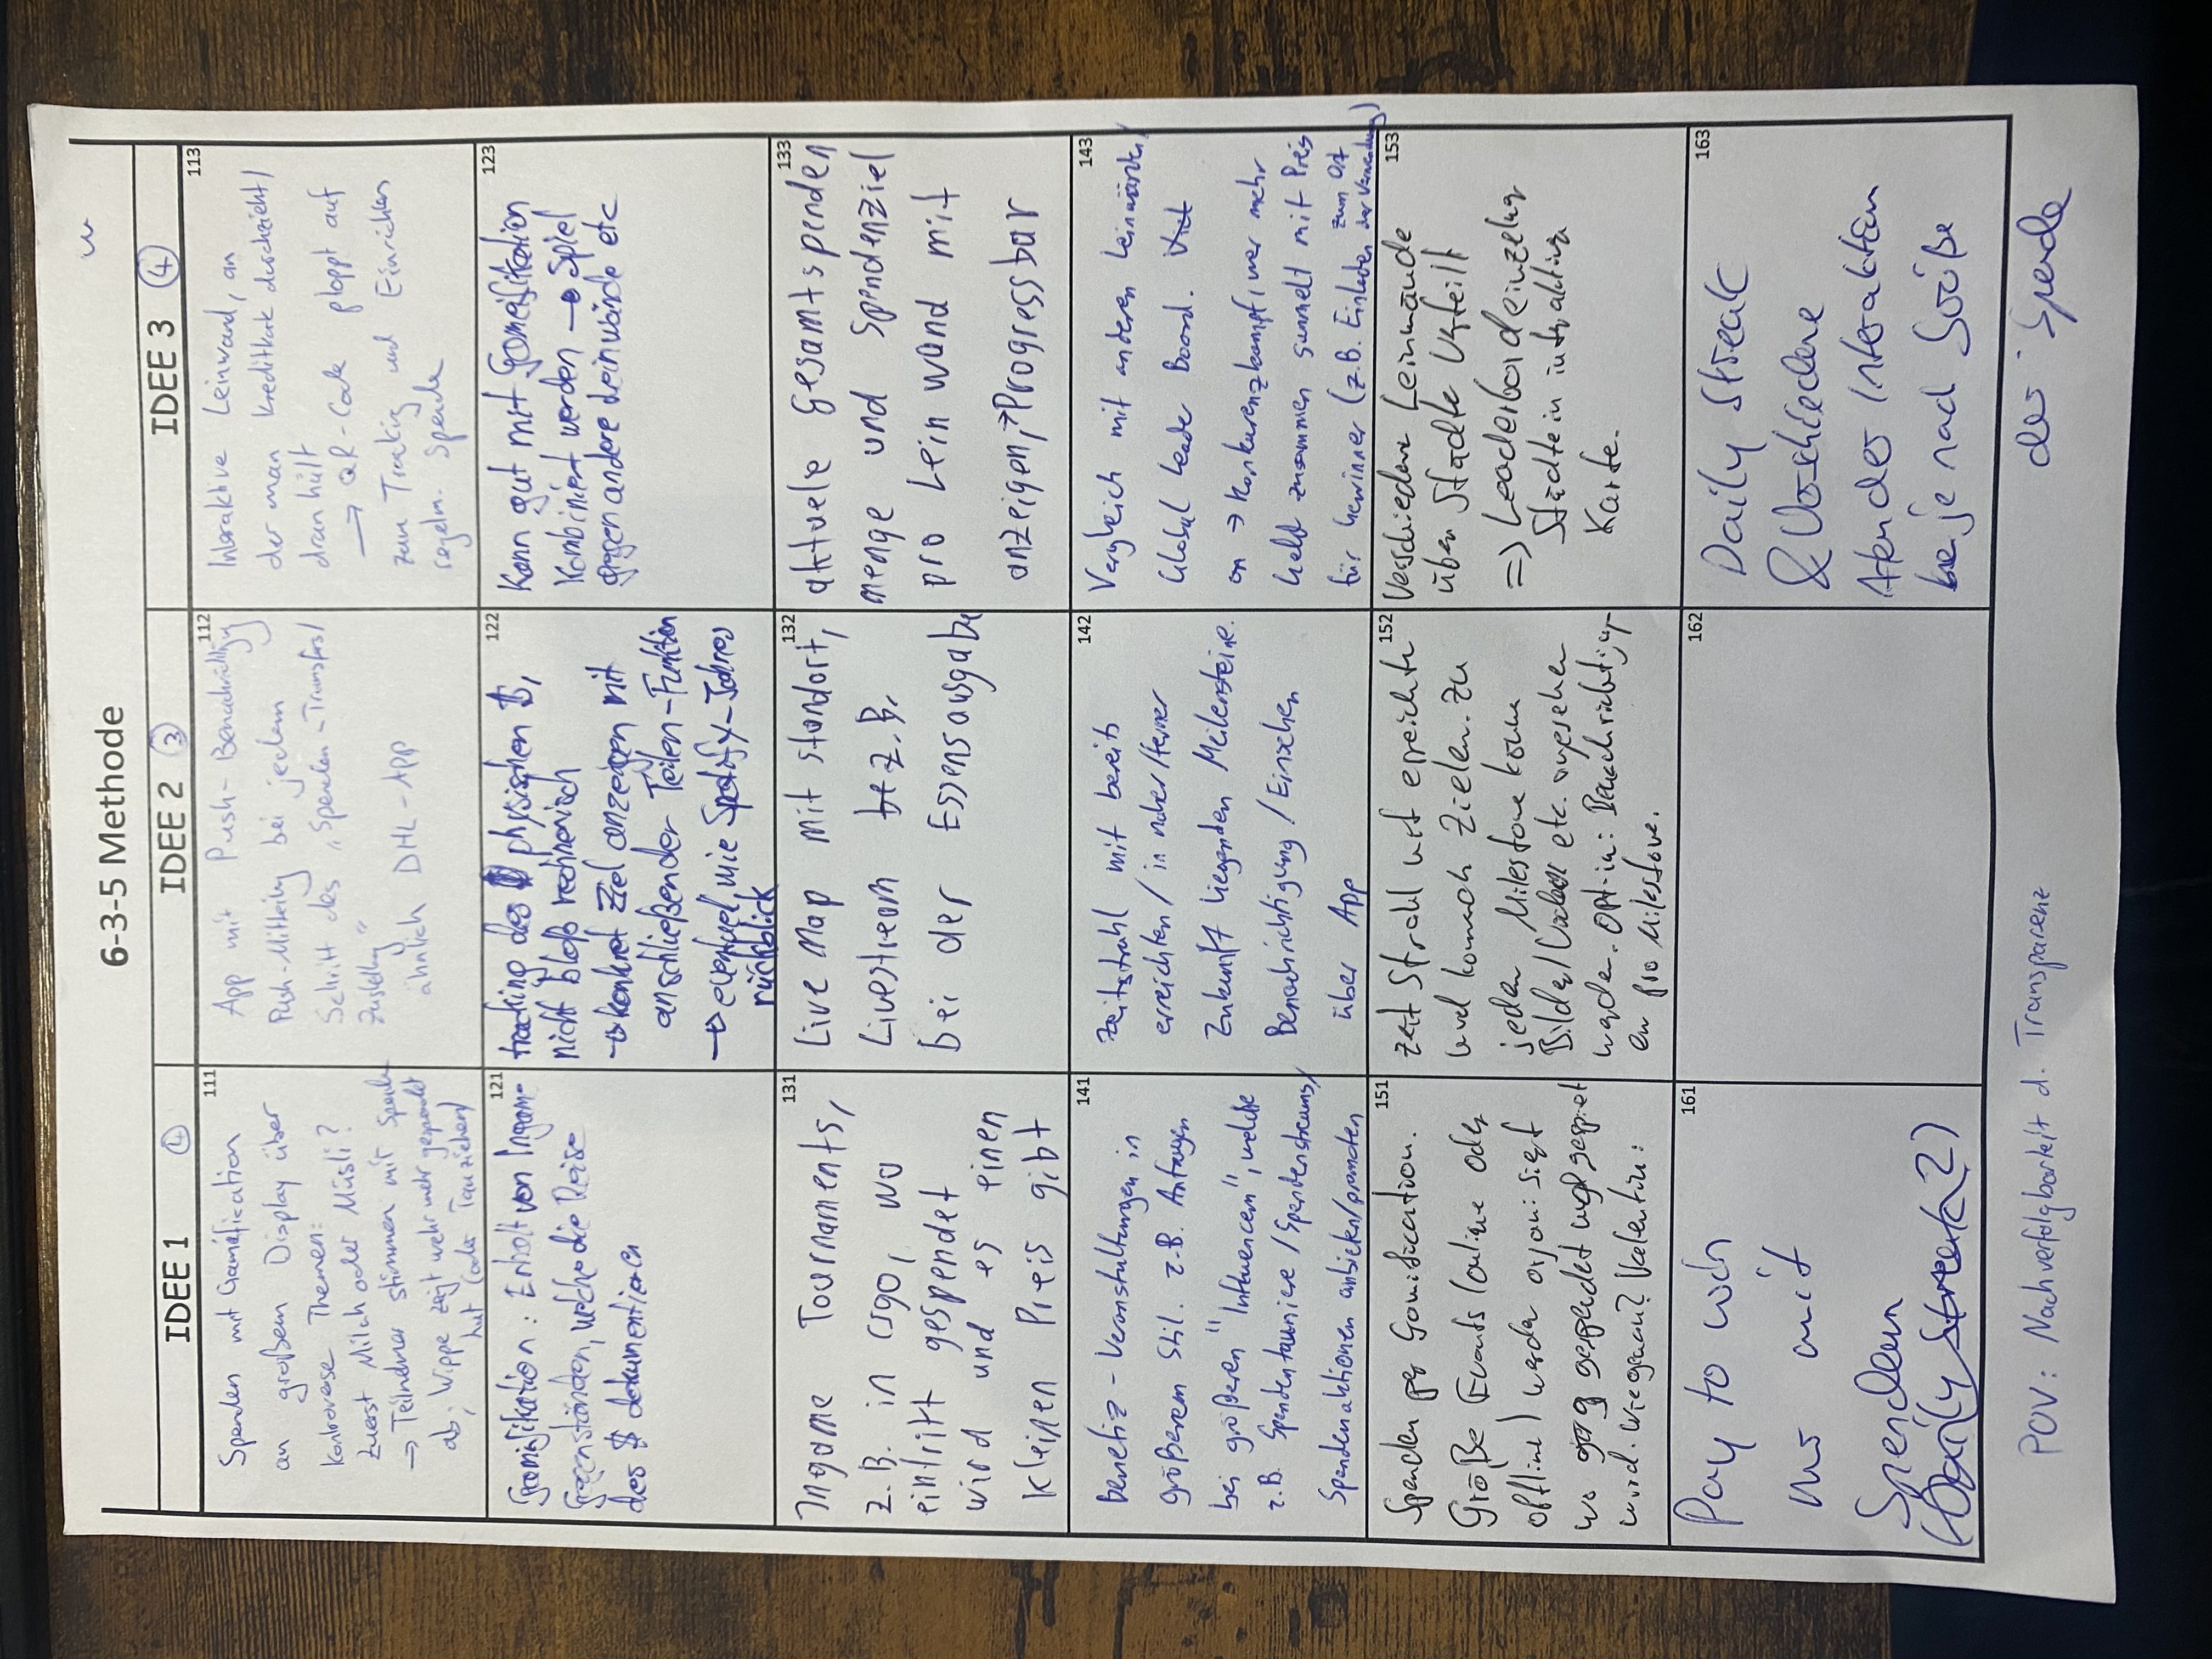 6-3-5 Methode
IDEE 1 4
IDEE 2 3
IDEE 3 4
111
Spenden mit Gamification
an großem Display über
kontroverse Themen:
Zuerst Milch oder Müsli?
→ Teilnehmer stimmen mit Spende
ab; Wippe zeigt wehr mehr gespendet
hat (oder Tauziehen)
112
App mit Push-Benachrichtigung
Push-Mitteilung bei jedem
Schritt des „Spenden-Transfers/
Zustellung"
ähnlich DHL-App
113
Interaktive Leinwand, an
der man Kreditkarte durchzieht/
dranhält
→ QR-Code ploppt auf
zum Tracking und Einrichten
regelm. Spende
121
Gamifikation: Erhalt von Ingame-
gegenständen, welche die Reise
des $ dokumentieren
122
tracking des physischen $,
nicht bloß rechnerisch
→ konkret Ziel anzeigen mit
anschließender Teilen-Funktion
→ eventuel, wie Spotify-Jahres
rückblick
123
Kann gut mit Gameifikation
kombiniert werden → Spiel
gegen andere Leinwände etc
131
Ingame Tournaments,
z.B. in csgo, wo
eintritt gespendet
wird und es einen
kleinen Preis gibt
132
Live Map mit standort,
Livestream z.B.
bei der Essensausgabe
133
aktuele gesamtspenden
menge und spendenziel
pro Leinwand mit
anzeigen, → Progressbar
141
Benefiz-Veranstaltungen in
größerem Stil. z.B. Anfragen
bei größeren "Influencern", welche
z.B. Spendentauniere/Spendenstreams/
Spendenaktionen anbieten/promoten
142
Zeitstrahl mit bereits
erreichten / in naher/ferner
Zukunft liegenden Meilensteine.
Benachrichtigung / Einsehen
über App
143
Vergleich mit anderen Leinwänden/
Global Leader Board.
on → Konkurenzkampf, wer mehr
Geld zusammen sammelt mit Preis
für Gewinner (z.B. Einladen zum Ort
der Verwendung)
151
Spenden per Gamification.
Große Events (online oder
offline) werden organisiert
wo gespendet und gespielt
wird. Wie genau? Valentin:
152
Zeit Strahl mit erreichte
und kommenden Zielen. Zu
jeden Milestone können
Bilder/Videos etc. angesehen
werden. Opt-in: Benachrichtigung-
en pro Milestone.
153
Verschiedene Leinwände
über Städte Verteilt
=> Leaderbord einzelner
Städte in interaktiver
Karte.
161
Pay to win
nur mit
Spenden
(Daily Streak?)
162
163
Daily Streak
& Verschiedene
Arten der Interaktion
je nach Größe
der Spende
POV: Nachverfolgbarkeit d. Transparenz